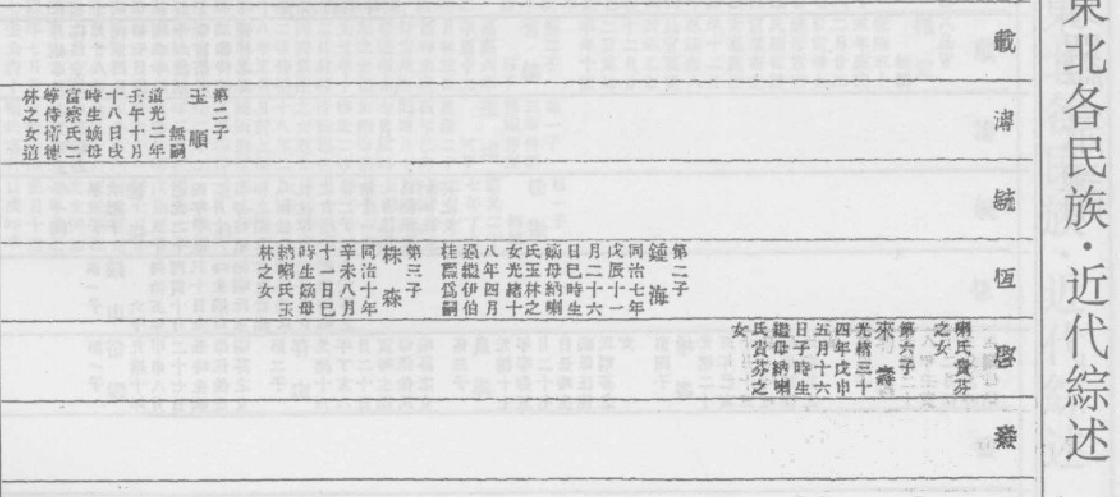 東北各民族・近代綜述
載
溥
毓
恆
啓
燾
第二子
玉順
無嗣
道光二年
壬午十月
十八日戌
時生嫡母
富察氏二
等侍衛德
林之女道
第二子
鍾海
同治七年
戊辰十一
月二十六
日巳時生
嫡母納喇
氏玉林之
女光緒十
八年四月
過繼伊伯
桂霱爲嗣
第三子
株森
同治十年
辛未八月
十一日巳
時生嫡母
納喇氏玉
林之女
喇氏貴芬
之女
第六子
來壽
光緒三十
四年戊申
五月十六
日子時生
繼母納喇
氏貴芬之
女